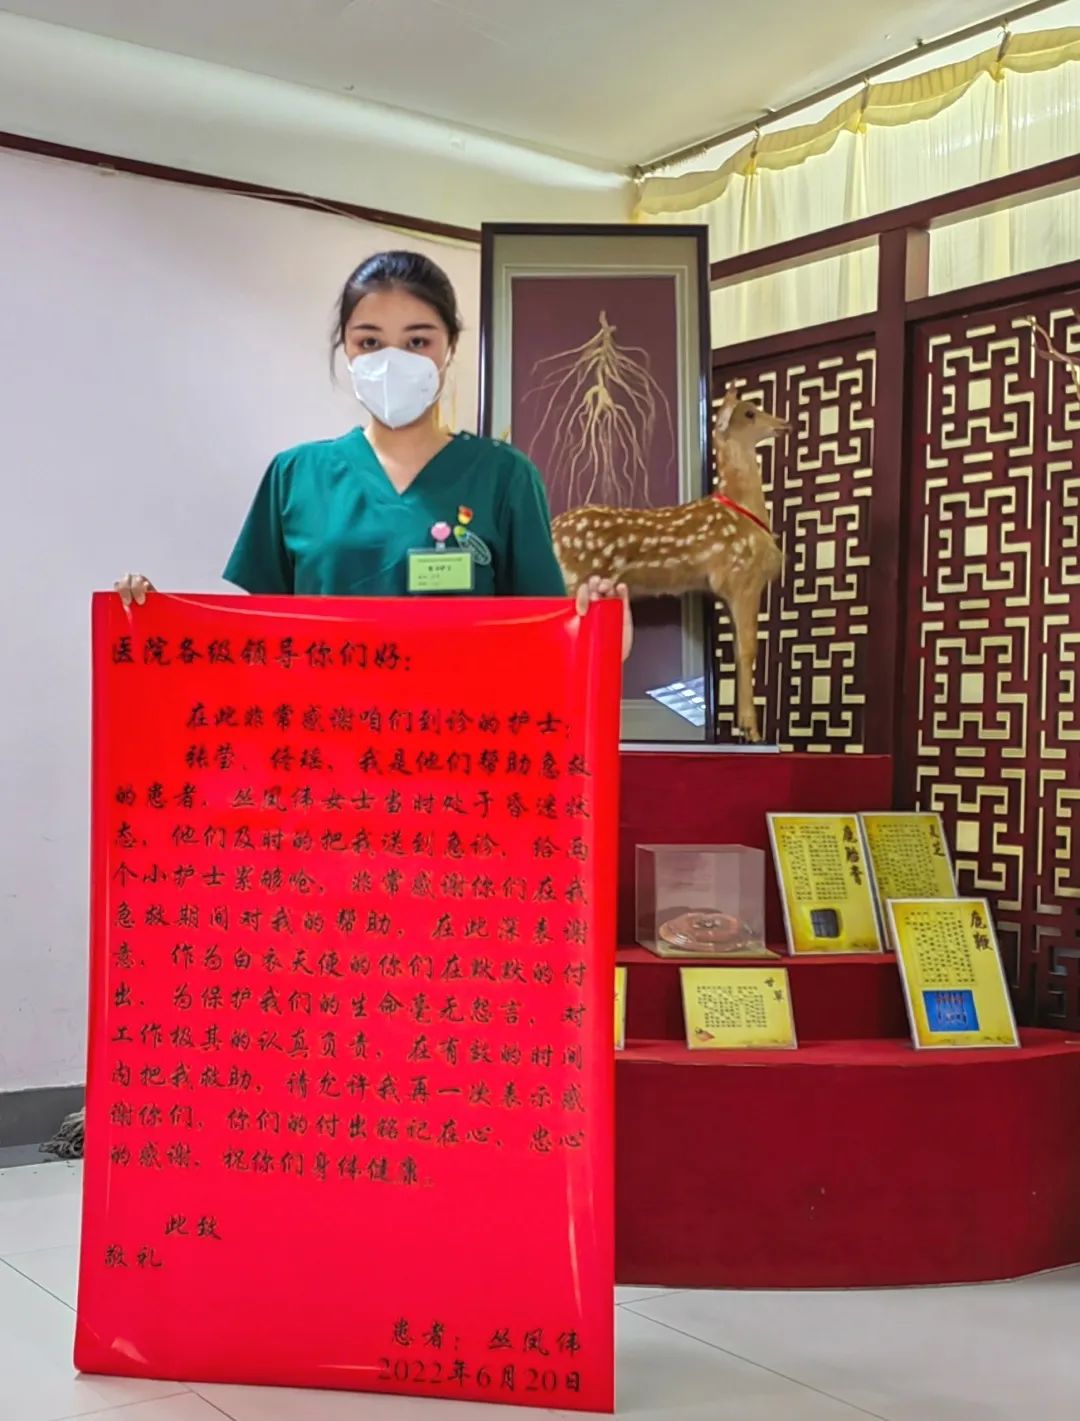 医院各级领导你们好：
在此非常感谢咱们到诊的护士：
张莹、佟瑶，我是他们帮助急救
的患者，丛凤伟女士当时处于昏迷状
态，他们及时的把我送到急诊，给两
个小护士累够呛，非常感谢你们在我
急救期间对我的帮助，在此深表谢
意，作为白衣天使的你们在默默的付
出，为保护我们的生命毫无怨言，对
工作极其的认真负责，在有效的时间
内把我救助，请允许我再一次表示感
谢你们，你们的付出铭记在心，忠心
的感谢，祝你们身体健康。
此致
敬礼
患者：丛凤伟
2022年6月20日
鹿胎膏
鹿鞭
甘草